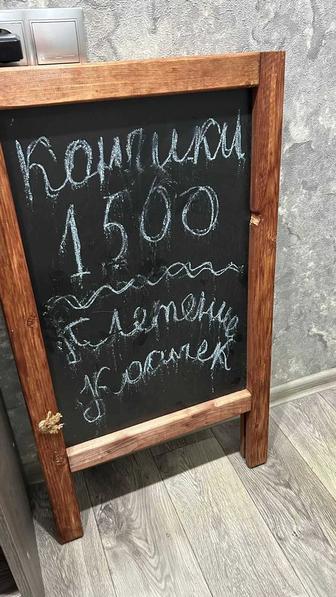 Кончики
1500
плетение
косичек